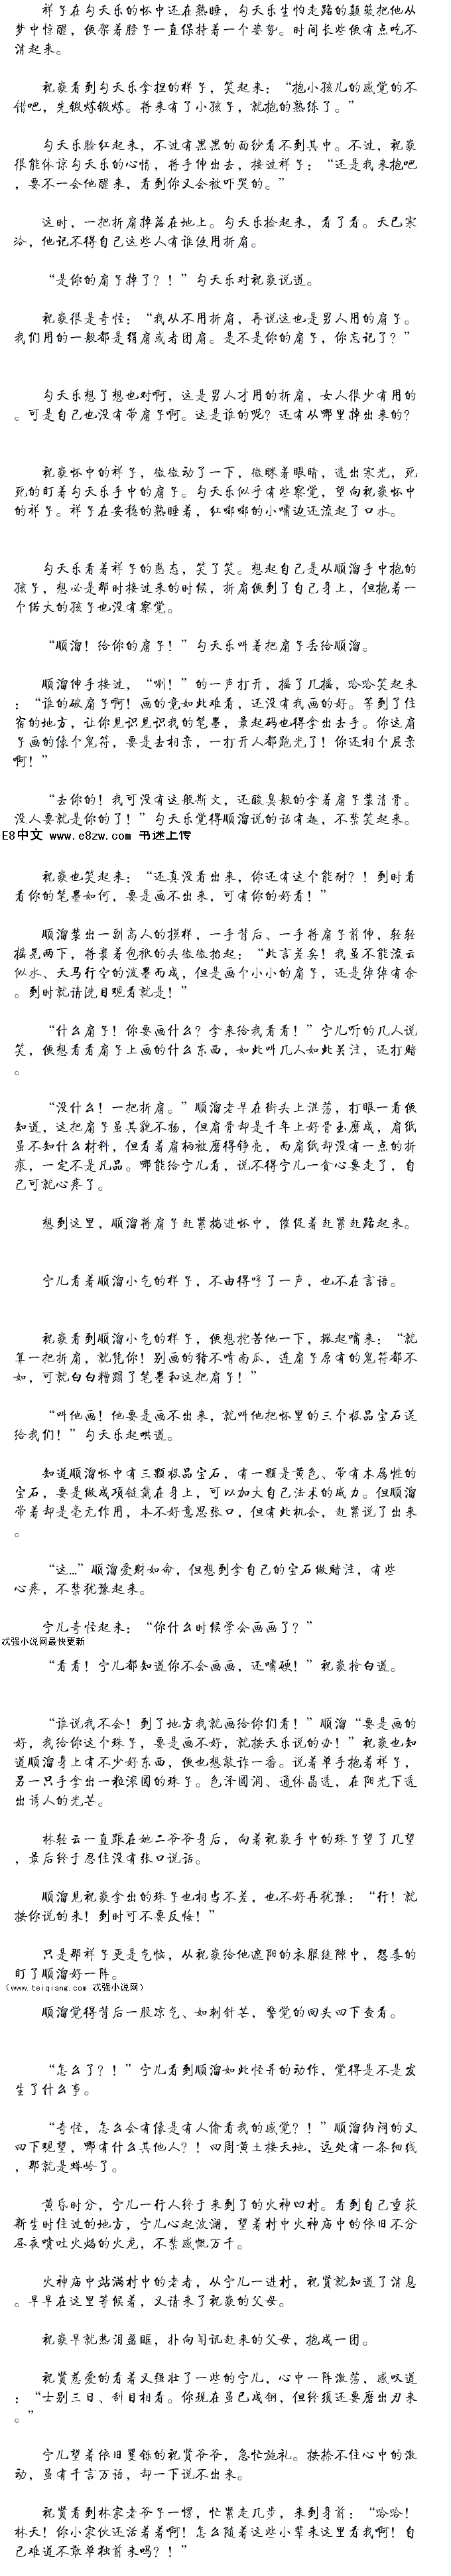 祥子在勾天乐的怀中还在熟睡，勾天乐生怕走路的颠簸把他从
梦中惊醒，便架着膀子一直保持着一个姿势。时间长些便有点吃不
消起来。
祝葵看到勾天乐拿捏的样子，笑起来：“抱小孩儿的感觉的不
错吧，先锻炼锻炼。将来有了小孩子，就抱的熟练了。”
勾天乐脸红起来，不过有黑黑的面纱看不到其中。不过，祝葵
很能体谅勾天乐的心情，将手伸出去，接过祥子：“还是我来抱吧
，要不一会他醒来，看到你又会被吓哭的。”
这时，一把折扇掉落在地上。勾天乐捡起来，看了看。天已寒
冷，他记不得自己这些人有谁使用折扇。
“是你的扇子掉了？！”勾天乐对祝葵说道。
祝葵很是奇怪：“我从不用折扇，再说这也是男人用的扇子。
我们用的一般都是绢扇或者团扇。是不是你的扇子，你忘记了？”
勾天乐想了想也对啊，这是男人才用的折扇，女人很少有用的
。可是自己也没有带扇子啊。这是谁的呢？还有从哪里掉出来的？
祝葵怀中的祥子，微微动了一下，微眯着眼睛，透出寒光，死
死的盯着勾天乐手中的扇子。勾天乐似乎有些察觉，望向祝葵怀中
的祥子。祥子在安稳的熟睡着，红嘟嘟的小嘴边还流起了口水。
勾天乐看着祥子的憨态，笑了笑。想起自己是从顺溜手中抱的
孩子，想必是那时接过来的时候，折扇便到了自己身上，但抱着一
个偌大的孩子也没有察觉。
“顺溜！给你的扇子！”勾天乐叫着把扇子丢给顺溜。
顺溜伸手接过，“唰！”的一声打开，摇了几摇，哈哈笑起来
：“谁的破扇子啊！画的竟如此难看，还没有我画的好。等到了住
宿的地方，让你见识见识我的笔墨，最起码也得拿出去手。你这扇
子画的像个鬼符，要是去相亲，一打开人都跑光了！你还相个屁亲
啊！”
“去你的！我可没有这般斯文，还酸臭般的拿着扇子装清骨。
没人要就是你的了！”勾天乐觉得顺溜说的话有趣，不禁笑起来。
E8中文 www.e8zw.com 书迷上传
祝葵也笑起来：“还真没看出来，你还有这个能耐？！到时看
看你的笔墨如何，要是画不出来，可有你的好看！”
顺溜装出一副高人的模样，一手背后、一手将扇子前伸，轻轻
摇晃两下，将裹着包袱的头微微抬起：“此言差矣！我虽不能流云
似水、天马行空的泼墨而成，但是画个小小的扇子，还是绰绰有余
。到时就请洗目观看就是！”
“什么扇子！你要画什么？拿来给我看看！”宁儿听的几人说
笑，便想看看扇子上画的什么东西，如此叫几人如此关注，还打赌
。
“没什么！一把折扇。”顺溜老早在街头上混荡，打眼一看便
知道，这把扇子虽其貌不扬，但扇骨却是千年上好骨玉磨成，扇纸
虽不知什么材料，但看着扇柄被磨得铮亮，而扇纸却没有一点的折
痕，一定不是凡品。哪能给宁儿看，说不得宁儿一贪心要走了，自
己可就心疼了。
想到这里，顺溜将扇子赶紧揣进怀中，催促着赶紧赶路起来。
宁儿看着顺溜小气的样子，不由得哼了一声，也不在言语。
祝葵看到顺溜小气的样子，便想挖苦他一下，撇起嘴来：“就
算一把折扇，就凭你！别画的猪不啃南瓜，连扇子原有的鬼符都不
如，可就白白糟蹋了笔墨和这把扇子！”
“叫他画！他要是画不出来，就叫他把怀里的三个极品宝石送
给我们！”勾天乐起哄道。
知道顺溜怀中有三颗极品宝石，有一颗是黄色、带有木属性的
宝石，要是做成项链戴在身上，可以加大自己法术的威力。但顺溜
带着却是毫无作用，本不好意思张口，但有此机会，赶紧说了出来
。
“这…”顺溜爱财如命，但想到拿自己的宝石做赌注，有些
心疼，不禁犹豫起来。
宁儿奇怪起来：“你什么时候学会画画了？”
次强小说网最快更新
“看看！宁儿都知道你不会画画，还嘴硬！”祝葵抢白道。
“谁说我不会！到了地方我就画给你们看！”顺溜“要是画的
好，我给你这个珠子，要是画不好，就按天乐说的办！”祝葵也知
道顺溜身上有不少好东西，便也想敲诈一番。说着单手抱着祥子，
另一只手拿出一粒滚圆的珠子。色泽圆润、通体晶透，在阳光下透
出诱人的光芒。
林轻云一直跟在她二爷爷身后，向着祝葵手中的珠子望了几望
，最后终于忍住没有张口说话。
顺溜见祝葵拿出的珠子也相当不差，也不好再犹豫：“行！就
按你说的来！到时可不要反悔！”
只是那祥子更是气恼，从祝葵给他遮阳的衣服缝隙中，怨毒的
盯了顺溜好一阵。
（www.teiqiang.com 次强小说网）
顺溜觉得背后一股凉气、如刺针芒，警觉的回头四下查看。
“怎么了？！”宁儿看到顺溜如此怪异的动作，觉得是不是发
生了什么事。
“奇怪，怎么会有像是有人偷看我的感觉？！”顺溜纳闷的又
四下观望，哪有什么其他人？！四周黄土接天地，远处有一条细线
，那就是蟒岭了。
黄昏时分，宁儿一行人终于来到了的火神凹村。看到自己重获
新生时住过的地方，宁儿心起波澜，望着村中火神庙中的依旧不分
昼夜喷吐火焰的火龙，不禁感慨万千。
火神庙中站满村中的老者，从宁儿一进村，祝贤就知道了消息
。早早在这里等候着，又请来了祝葵的父母。
祝葵早就热泪盈眶，扑向闻讯赶来的父母，抱成一团。
祝贤慈爱的看着又强壮了一些的宁儿，心中一阵激荡，感叹道
：“士别三日、刮目相看。你现在虽已成钢，但终须还要磨出刃来
。”
宁儿望着依旧矍铄的祝贤爷爷，急忙施礼。按捺不住心中的激
动，虽有千言万语，却一下说不出来。
祝贤看到林家老爷子一愣，忙紧走几步，来到身前：“哈哈！
林天！你小家伙还活着着啊！怎么随着这些小辈来这里看我啊！自
己难道不敢单独前来吗？！”